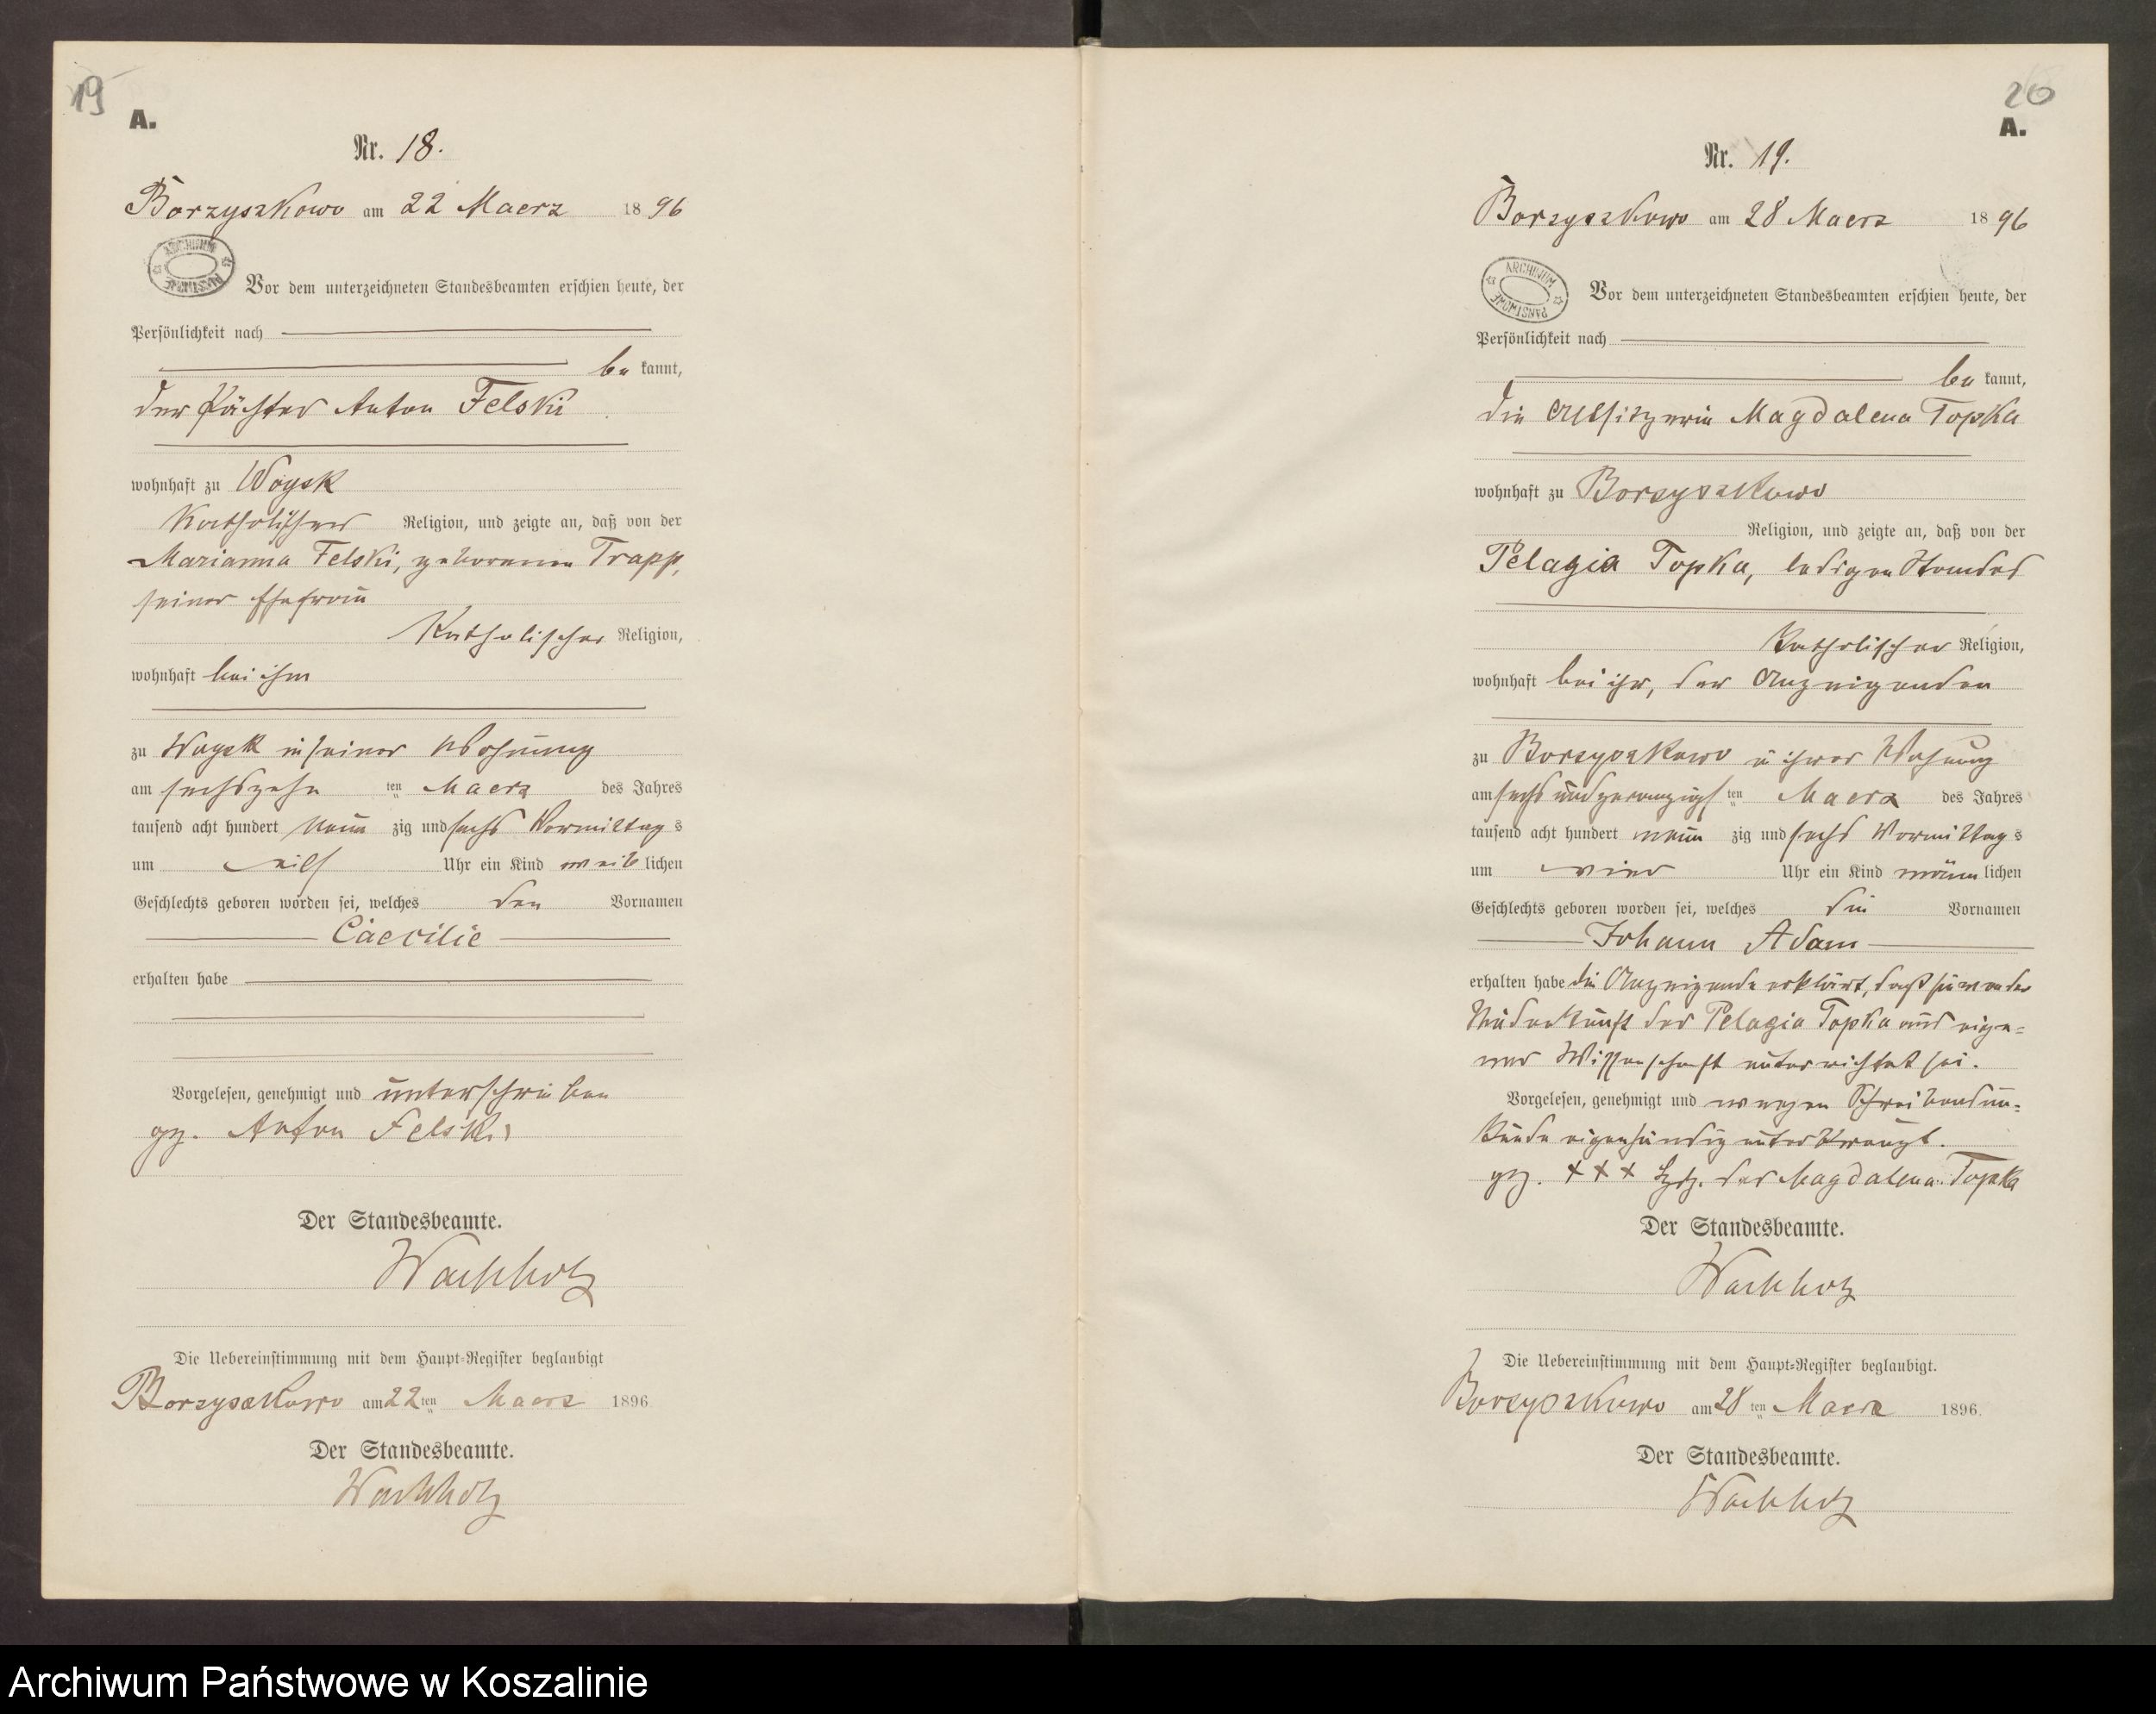 19
A.
Nr. 18.
Borzyszkowo am 22 Maerz 1896
ARCHIWUM PAŃSTWOWE
Vor dem unterzeichneten Standesbeamten erschien heute, der
Persönlichkeit nach
be kannt,
der Pächter Anton Felski
wohnhaft zu Woysk
katholischer Religion, und zeigte an, daß von der
Marianna Felski, geborenen Trapp,
seiner Ehefrau
katholischer Religion,
wohnhaft bei ihm
zu Woysk in seiner Wohnung
am sechszehn ten Maerz des Jahres
tausend acht hundert neun zig und sechs Vormittag s
um elf Uhr ein Kind weib lichen
Geschlechts geboren worden sei, welches den Vornamen
Caecilie
erhalten habe
Vorgelesen, genehmigt und unterschrieben
gz. Anton Felski
Der Standesbeamte.
Wachholz
Die Uebereinstimmung mit dem Haupt-Register beglaubigt
Borzyszkowo am 22 ten Maerz 1896
Der Standesbeamte.
Wachholz
20
A.
Nr. 19.
Borzyszkowo am 28 Maerz 1896
ARCHIWUM PAŃSTWOWE
Vor dem unterzeichneten Standesbeamten erschien heute, der
Persönlichkeit nach
be kannt,
die Altsitzerin Magdalena Topka
wohnhaft zu Borzyszkowo
Religion, und zeigte an, daß von der
Pelagia Topka, ledigen Standes
katholischer Religion,
wohnhaft bei ihr, der Anzeigenden
zu Borzyszkowo in ihrer Wohnung
am sechs und zwanzigs ten Maerz des Jahres
tausend acht hundert neun zig und sechs Vormittag s
um vier Uhr ein Kind männ lichen
Geschlechts geboren worden sei, welches die Vornamen
Johann Adam
erhalten habe die Anzeigende erklärt, daß sie von der
Niederkunft der Pelagia Topka aus eige=
ner Wissenschaft unterrichtet sei.
Vorgelesen, genehmigt und wegen Schreibensun=
kunde eigenhändig unterkreuzt.
gz. + + + Hdz. der Magdalena Topka
Der Standesbeamte.
Wachholz
Die Uebereinstimmung mit dem Haupt-Register beglaubigt.
Borzyszkowo am 28 ten Maerz 1896.
Der Standesbeamte.
Wachholz
Archiwum Państwowe w Koszalinie